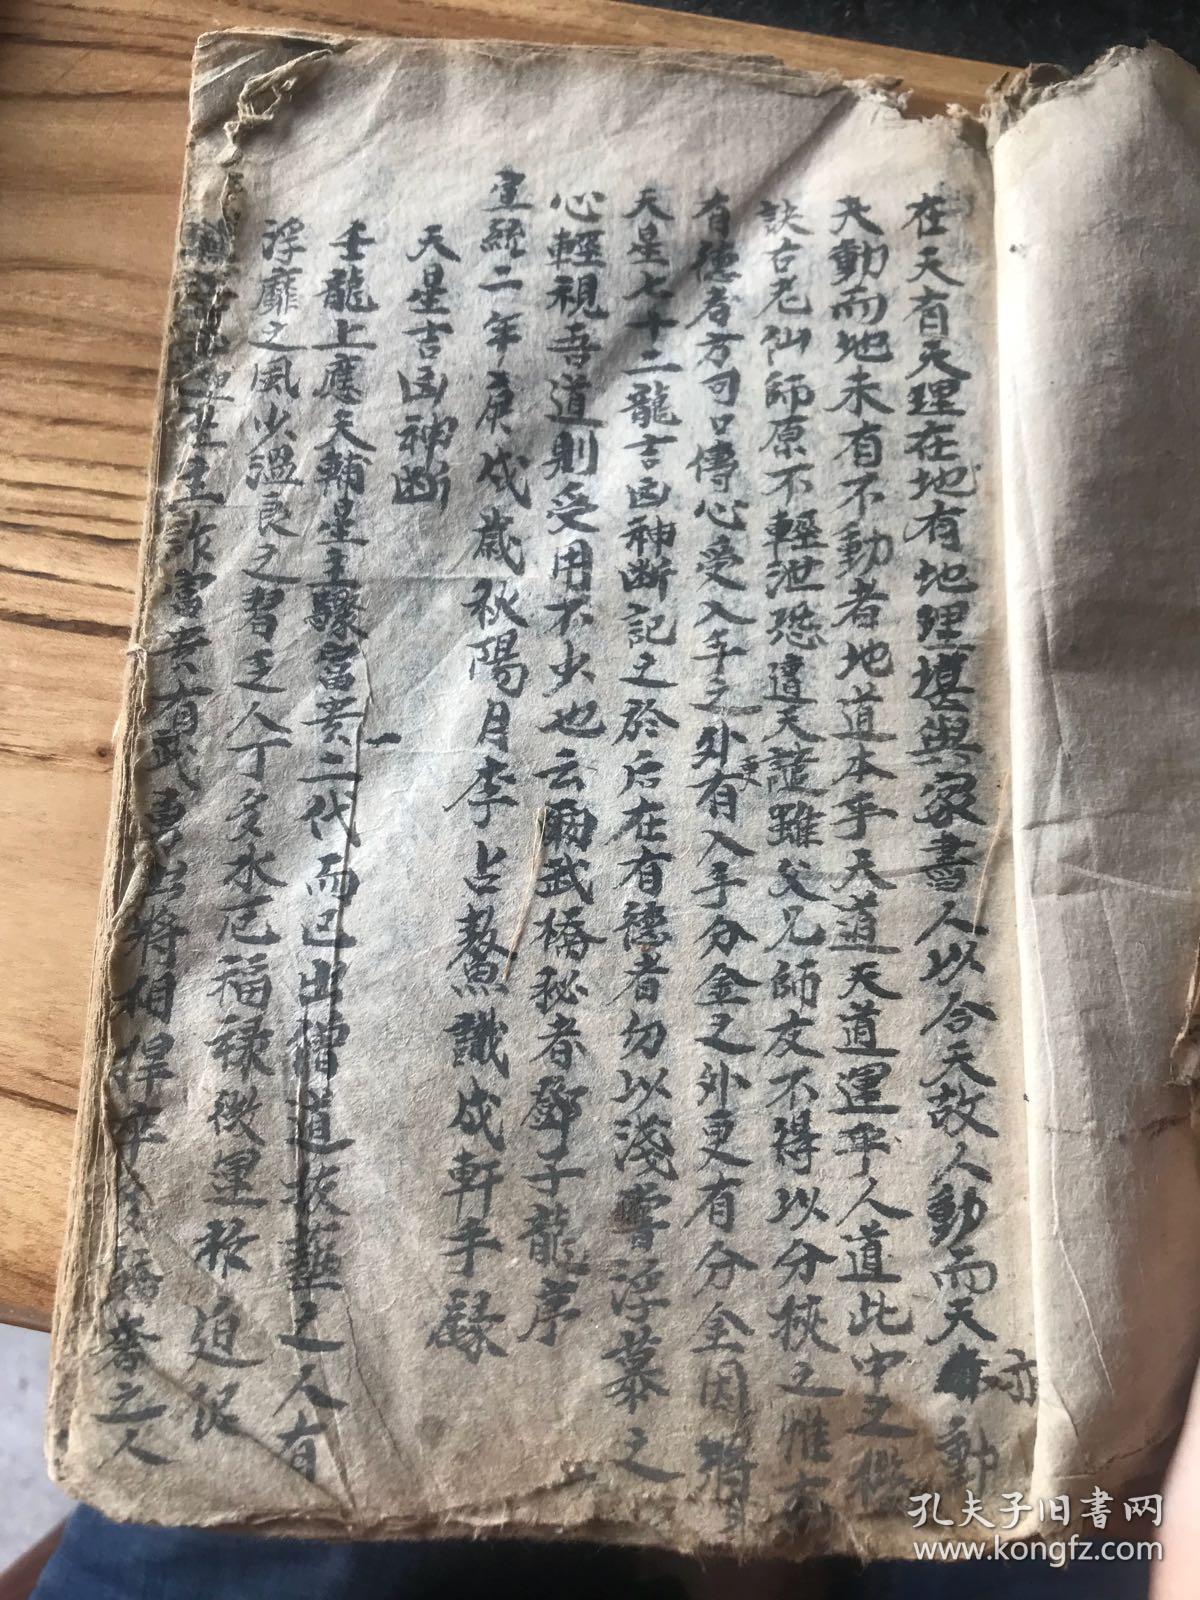 在天有天理在地有地理堪輿家書人以合天故人動而天亦動
天動而地未有不動者地道本乎天道天道運乎人道此中之
訣古老仙師原不輕泄恐遭天譴雖父兄師友不得以分授之惟
有德者方可口傳心受入手之外更有入手分金之外更有分金因將
天星七十二龍吉凶神斷記之於后在有德者勿以淺嘗浮慕之
心輕視吾道則受用不少也云爾武橋秘者鄧子龍序
宣統二年庚戌歲秋陽月李占鰲識成軒手錄
天星吉凶神斷
壬龍上應天輔星主驟富貴二代而已出僧道技藝之人有
浮靡之風少溫良之習主人丁多水厄福祿微運祚迫促
主詐富貴有武勇出將相之人
孔夫子旧書网
www.kongfz.com